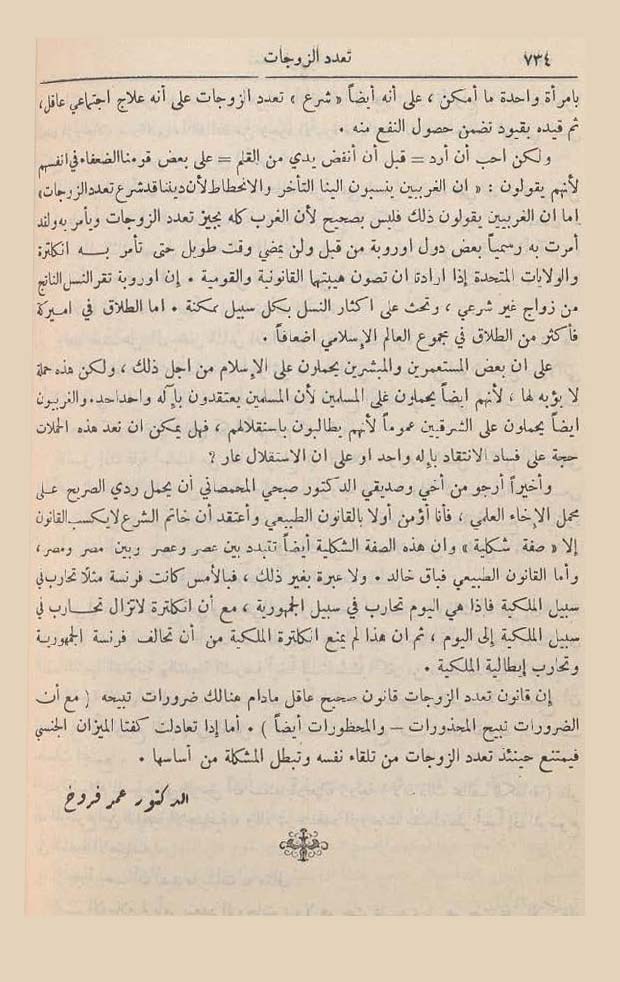 ٧٣٤
تعدد الزوجات
بامرأة واحدة ما أمكن ، على أنه أيضاً « شرع » تعدد الزوجات على أنه علاج اجتماعي عاقل،
ثم قيده بقيود تضمن حصول النفع منه .
ولكن احب أن أرد = قبل أن أنفض يدي من القلم = على بعض قومنا الضعفاء في انفسهم
لأنهم يقولون : « ان الغربيين ينسبون الينا التأخر والانحطاط لأن ديننا قد شرع تعدد الزوجات»
اما ان الغربيين يقولون ذلك فليس بصحيح لأن الغرب كله يجيز تعدد الزوجات ويأمر به ولقد
أمرت به رسمياً بعض دول اوروبة من قبل ولن يمضي وقت طويل حتى تأمر بــه انكلترة
والولايات المتحدة إذا ارادتا ان تصون هيبتها القانونية والقومية . إن اوروبة تقر النسل الناتج
من زواج غير شرعي ، وتحث على اكثار النسل بكل سبيل ممكنة . اما الطلاق في اميركة
فأكثر من الطلاق في مجموع العالم الإسلامي اضعافاً .
على ان بعض المستعمرين والمبشرين يحملون على الإسلام من اجل ذلك ، ولكن هذه حملة
لا يؤبه لها ، لأنهم ايضاً يحملون على المسلمين لأن المسلمين يعتقدون بإله واحد احد. والغربيون
ايضاً يحملون على الشرقيين عموماً لأنهم يطالبون باستقلالهم ، فهل يمكن ان نعد هذه الحملات
حجة على فساد الاعتقاد بإله واحد او على ان الاستقلال عار ?
وأخيراً أرجو من أخي وصديقي الدكتور صبحي المحمصاني أن يحمل ردي الصريح على
محمل الإخاء العلمي ، فأنا أؤمن أولا بالقانون الطبيعي وأعتقد أن خاتم الشرع لا يكسب القانون
إلا « صفة شكلية » وان هذه الصفة الشكلية أيضاً تتبدد بين عصر وعصر وبين مصر ومصر،
وأما القانون الطبيعي فباق خالد . ولا عبرة بغير ذلك ، فبالأمس كانت فرنسة مثلاً تحارب في
سبيل الملكية فاذا هي اليوم تحارب في سبيل الجمهورية ، مع أن انكلترة لا تزال تحــارب في
سبيل الملكية إلى اليوم ، ثم ان هذا لم يمنع انكلترة الملكية من أن تحالف فرنسة الجمهورية
وتحارب إيطالية الملكية .
إن قانون تعدد الزوجات قانون صحيح عاقل مادام هنالك ضرورات تبيحه ( مع أن
الضرورات تبيح المحذورات – والمحظورات أيضاً ) . أما إذا تعادلت كفتا الميزان الجنسي
فيمتنع حينئذ تعدد الزوجات من تلقاء نفسه وتبطل المشكلة من أساسها .
الدكتور عمر فروخ